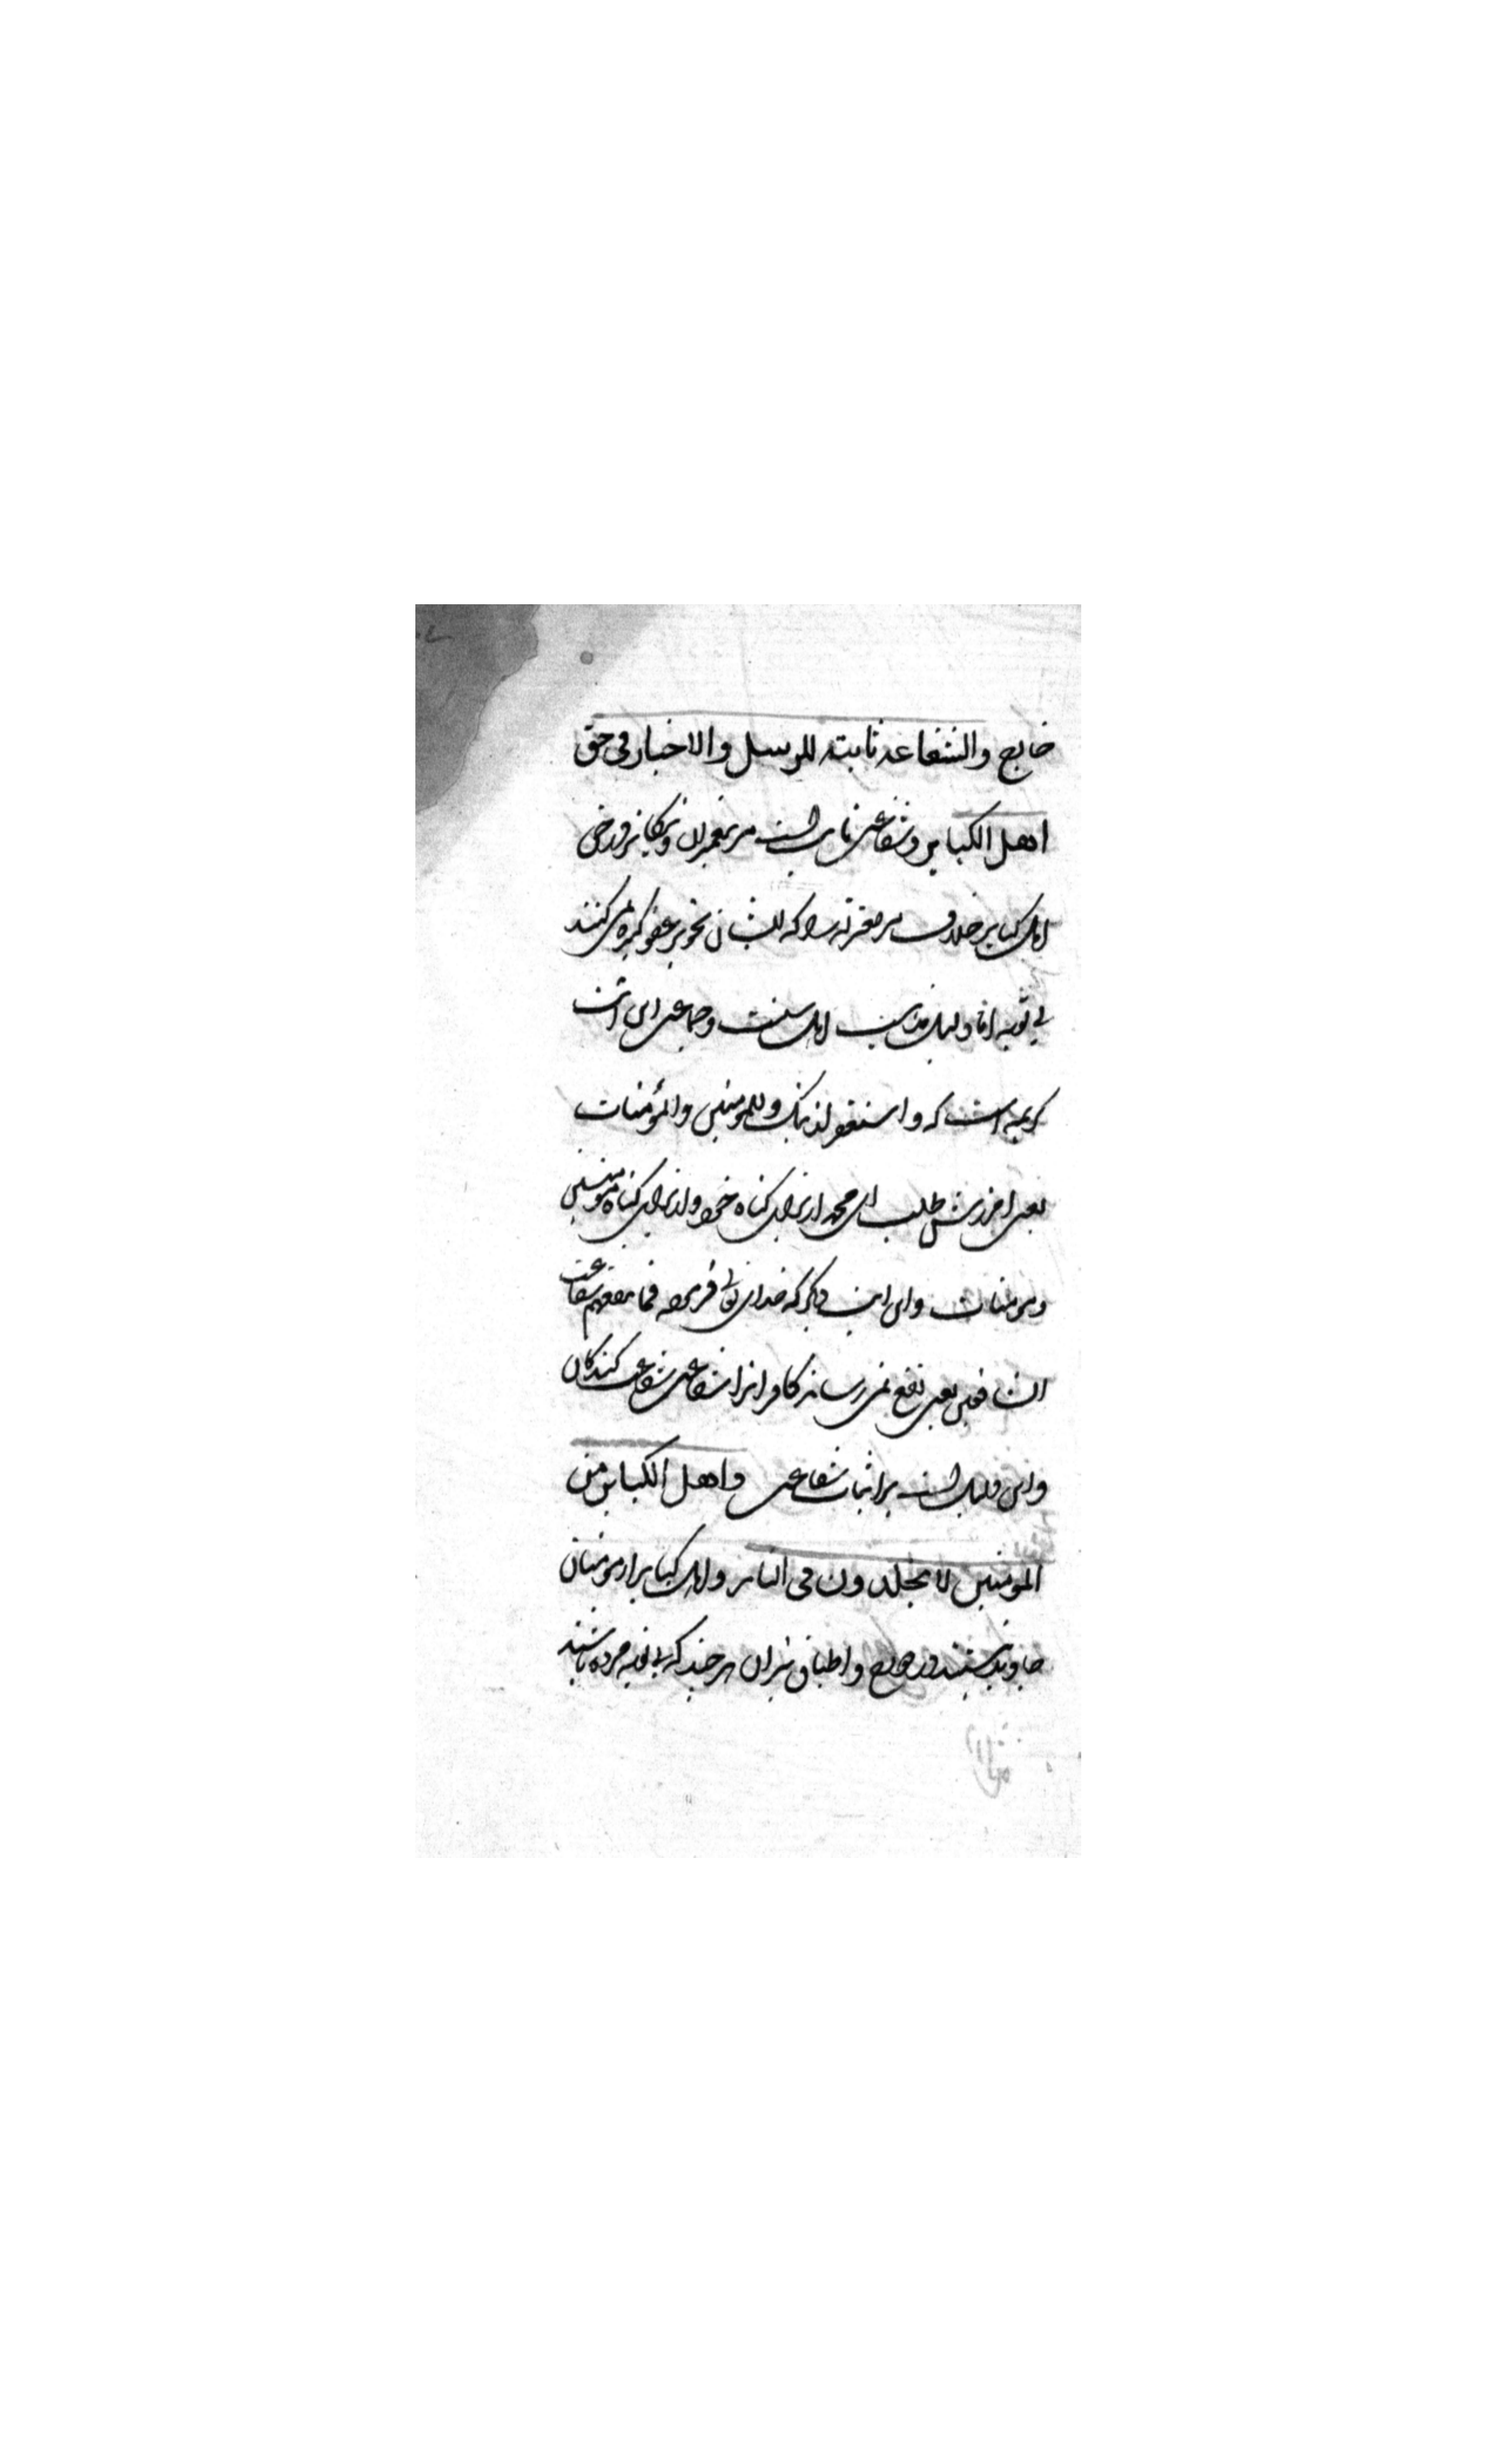 خارج والشفاعة ثابتة للرسل والاخيار فی حق
اهل الكباير وشفاعتی ثابت است مر پیغمبران و نیکانرا در حق
اهل کبایر خلاف مر معتزله را که ایشان تجویز عفو کبیره نمی کنند
بی توبه اما دلیل مذهب اهل سنت وجماعت این آیت
کریمه است که واستغفر لذنبک وللمؤمنین والمؤمنات
یعنی امرزش طلب ای محمد از برای کناه خود و از برای کناه مومنین
ومومنات و این آیت دیگر که خدای تعالی فرموده فما تنفعهم شفاعت
الشافعین یعنی نفع نمی رساند کافرانرا شفاعت شفاعت کنندکان
واین دلیل است بر اثبات شفاعت واهل الكباير من
المومنین لا یخلدون فی النار واهل کبایر از مومنان
جاوید نیستند در دوزخ و اطباق نیران هر چند که بی توبه مرده باشند